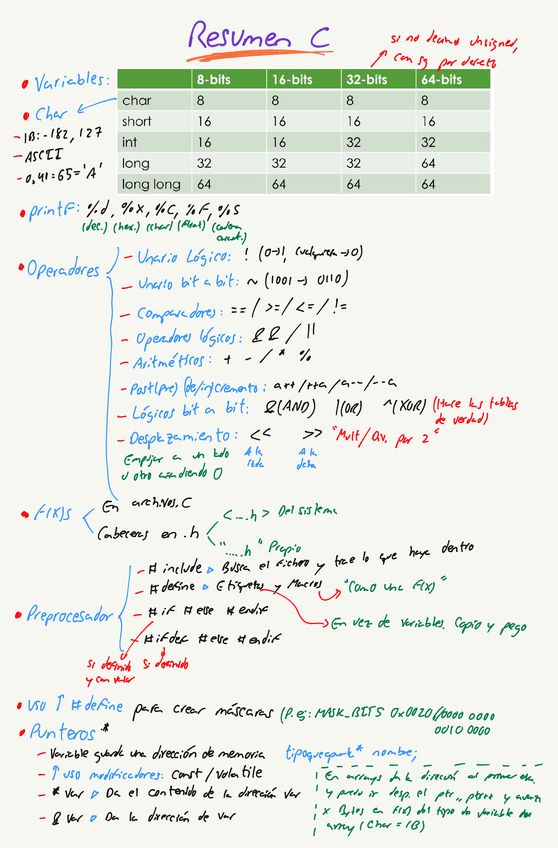 Resumen C
si no decimos unsigned,
con sg por defecto
• Variables:
8-bits 16-bits 32-bits 64-bits
char 8 8 8 8
short 16 16 16 16
int 16 16 32 32
long 32 32 32 64
long long 64 64 64 64
• Char
- 1B: -182, 127
- ASCII
- 0,41=65='A'
• printF: %d, %X, %C, %F, %S
(dec.) (hex.) (char) (float) (cadena caract.)
• Operadores
- Unario Lógico: ! (0→1, cualquiera→0)
- Unario bit a bit: ~ (1001 → 0110)
- Comparadores: == / >= / <= / !=
- Operadores lógicos: && / ||
- Aritméticos: + - / * %
- Post(pre) (de/in)cremento: a++/++a/a--/--a
- Lógicos bit a bit: &(AND) |(OR) ^(XOR) (Hace las tablas
de verdad)
- Desplazamiento: << >> "Mult/Div. por 2"
Empujar a un lado
u otro añadiendo 0
A la izda
A la dcha
• F(X)s
En archivos.C
Cabeceras en .h
<....h> Del sistema
".....h" Propio
• Preprocesador
- # include ▹ Busca el fichero y trae lo que haya dentro
- # define ▹ Etiquetas y Macros
"Como una F(x)"
En vez de variables. Copio y pego
- # if # else # endif
- # ifdef # else # endif
si definido
y con valor
si definido
• uso ↑ # define para crear máscaras (P.ej: MASK_BITS 0x0020 (0000 0000
0010 0000
• Punteros *
- Variable guarda una dirección de memoria
tipoqueapunta* nombre;
- ↑ uso modificadores: const / volatile
- * var ▹ Da el contenido de la dirección var
- & var ▹ Da la dirección de var
En arrays da la dirección al primer
y puedo ir desp. el ptr., ptr++ y avanza
x Bytes en F(x) del tipo de variable del
array (Char = 1B)